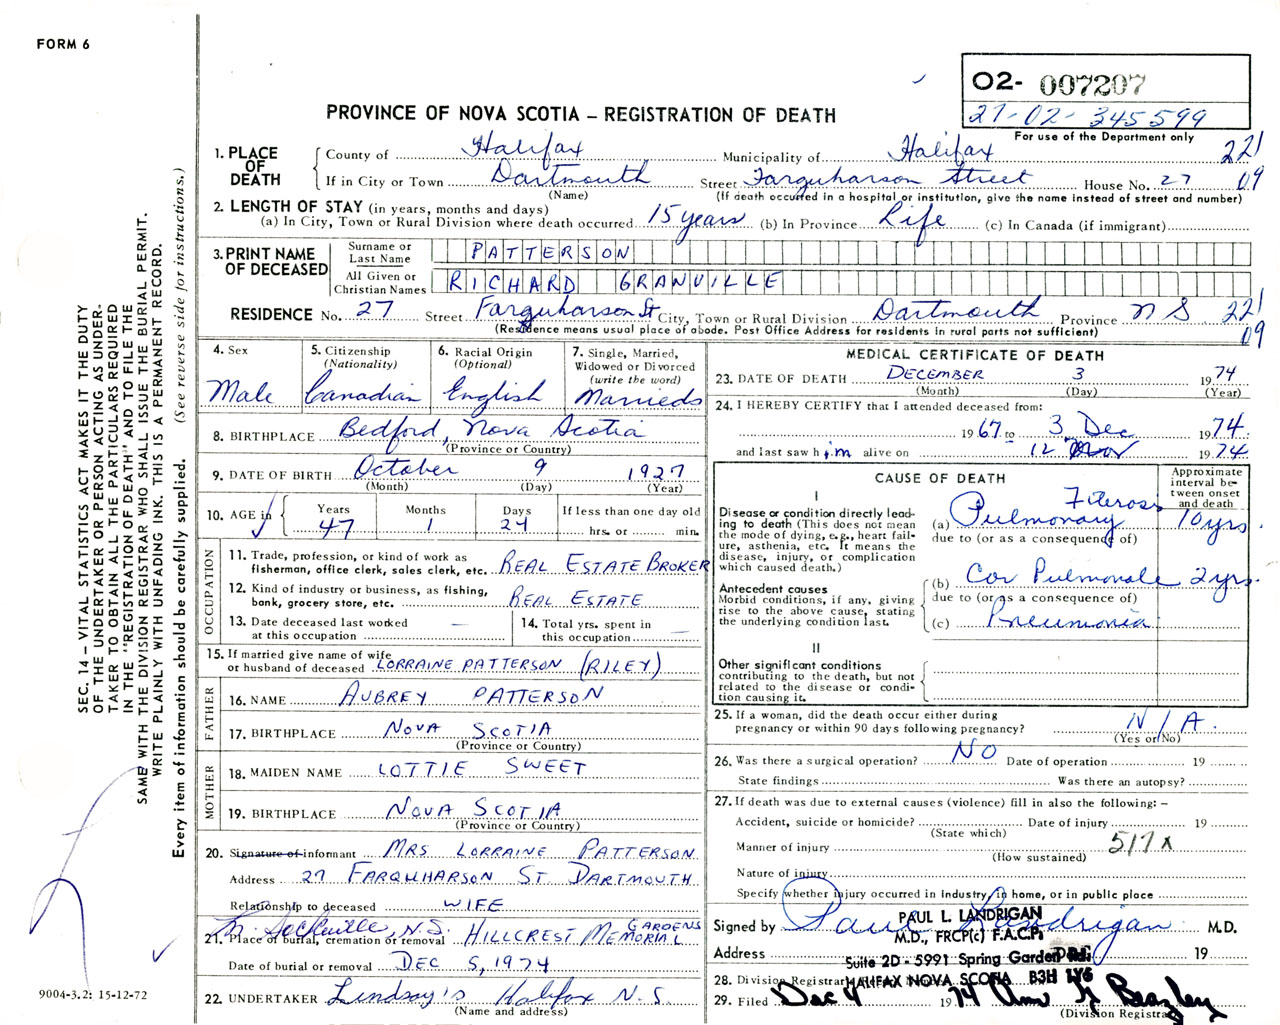 FORM 6
O2- 007207
27-02-345599
For use of the Department only
PROVINCE OF NOVA SCOTIA – REGISTRATION OF DEATH
1. PLACE OF DEATH
County of Halifax Municipality of Halifax 221
If in City or Town Dartmouth Street Farquharson Street House No. 27 09
(Name) (If death occurred in a hospital or institution, give the name instead of street and number)
2. LENGTH OF STAY (in years, months and days)
(a) In City, Town or Rural Division where death occurred 15 years (b) In Province Life (c) In Canada (if immigrant)
3. PRINT NAME OF DECEASED
Surname or Last Name PATTERSON
All Given or Christian Names RICHARD GRANVILLE
RESIDENCE No. 27 Street Farquharson St City, Town or Rural Division Dartmouth Province N S 221
(Residence means usual place of abode. Post Office Address for residents in rural parts not sufficient) 09
4. Sex
Male
5. Citizenship
(Nationality)
Canadian
6. Racial Origin
(Optional)
English
7. Single, Married,
Widowed or Divorced
(write the word)
Married
8. BIRTHPLACE Bedford, Nova Scotia
(Province or Country)
9. DATE OF BIRTH October 9 1927
(Month) (Day) (Year)
10. AGE in
Years Months Days If less than one day old
47 1 24 hrs. or min.
OCCUPATION
11. Trade, profession, or kind of work as
fisherman, office clerk, sales clerk, etc. REAL ESTATE BROKER
12. Kind of industry or business, as fishing,
bank, grocery store, etc. REAL ESTATE
13. Date deceased last worked
at this occupation —
14. Total yrs. spent in
this occupation —
15. If married give name of wife
or husband of deceased LORRAINE PATTERSON (RILEY)
FATHER
16. NAME AUBREY PATTERSON
17. BIRTHPLACE NOVA SCOTIA
(Province or Country)
MOTHER
18. MAIDEN NAME LOTTIE SWEET
19. BIRTHPLACE NOVA SCOTIA
(Province or Country)
20. Signature of informant MRS LORRAINE PATTERSON
Address 27 FARQUHARSON ST DARTMOUTH
Relationship to deceased WIFE
Sackville, N.S. GARDENS
21. Place of burial, cremation or removal HILLCREST MEMORIAL
Date of burial or removal DEC 5, 1974
22. UNDERTAKER Lindsay's Halifax N.S.
(Name and address)
MEDICAL CERTIFICATE OF DEATH
23. DATE OF DEATH DECEMBER 3 1974
(Month) (Day) (Year)
24. I HEREBY CERTIFY that I attended deceased from:
1967 to 3 Dec 1974
and last saw him alive on 12 Nov 1974
CAUSE OF DEATH
Approximate interval between onset and death
I
Disease or condition directly leading to death (This does not mean the mode of dying, e.g., heart failure, asthenia, etc. It means the disease, injury, or complication which caused death.)
(a) Pulmonary Fiterosis 10 yrs
due to (or as a consequence of)
Antecedent causes
Morbid conditions, if any, giving rise to the above cause, stating the underlying condition last.
(b) Cor Pulmonale 2 yrs.
due to (or as a consequence of)
(c) Pneumonia
II
Other significant conditions
contributing to the death, but not related to the disease or condition causing it.
25. If a woman, did the death occur either during
pregnancy or within 90 days following pregnancy? N/A.
(Yes or No)
26. Was there a surgical operation? NO Date of operation 19
State findings Was there an autopsy?
27. If death was due to external causes (violence) fill in also the following: –
Accident, suicide or homicide? Date of injury 19
(State which)
Manner of injury 517x
(How sustained)
Nature of injury
Specify whether injury occurred in industry, in home, or in public place
Signed by Paul Landrigan M.D.
PAUL L. LANDRIGAN
M.D., FRCP(c) F.A.C.P.
Address 19
Suite 2D - 5991 Spring Garden Rd.
HALIFAX NOVA SCOTIA B3H 1Y6
28. Division Registrar
29. Filed Dec 4 1974 Beazley
(Division Registrar)
SEC. 14 – VITAL STATISTICS ACT MAKES IT THE DUTY
OF THE UNDERTAKER OR PERSON ACTING AS UNDER-
TAKER TO OBTAIN ALL THE PARTICULARS REQUIRED
IN THE "REGISTRATION OF DEATH" AND TO FILE THE
SAME WITH THE DIVISION REGISTRAR WHO SHALL ISSUE THE BURIAL PERMIT.
WRITE PLAINLY WITH UNFADING INK. THIS IS A PERMANENT RECORD.
Every item of information should be carefully supplied. (See reverse side for instructions.)
9004-3.2: 15-12-72